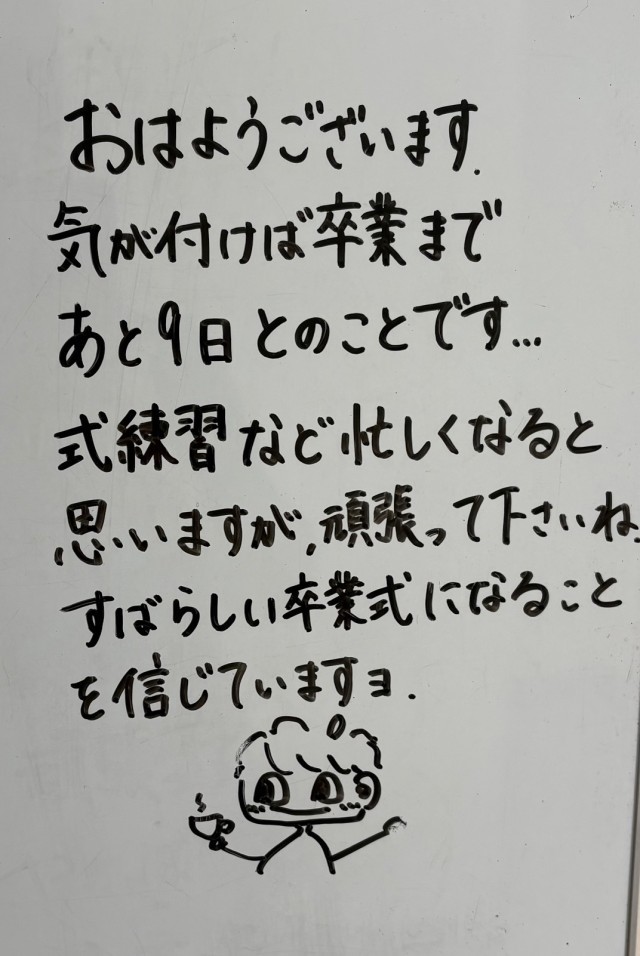 おはようございます.
気が付けば卒業まで
あと9日とのことです...
式練習など忙しくなると
思いますが,頑張って下さいね.
すばらしい卒業式になること
を信じていますヨ.